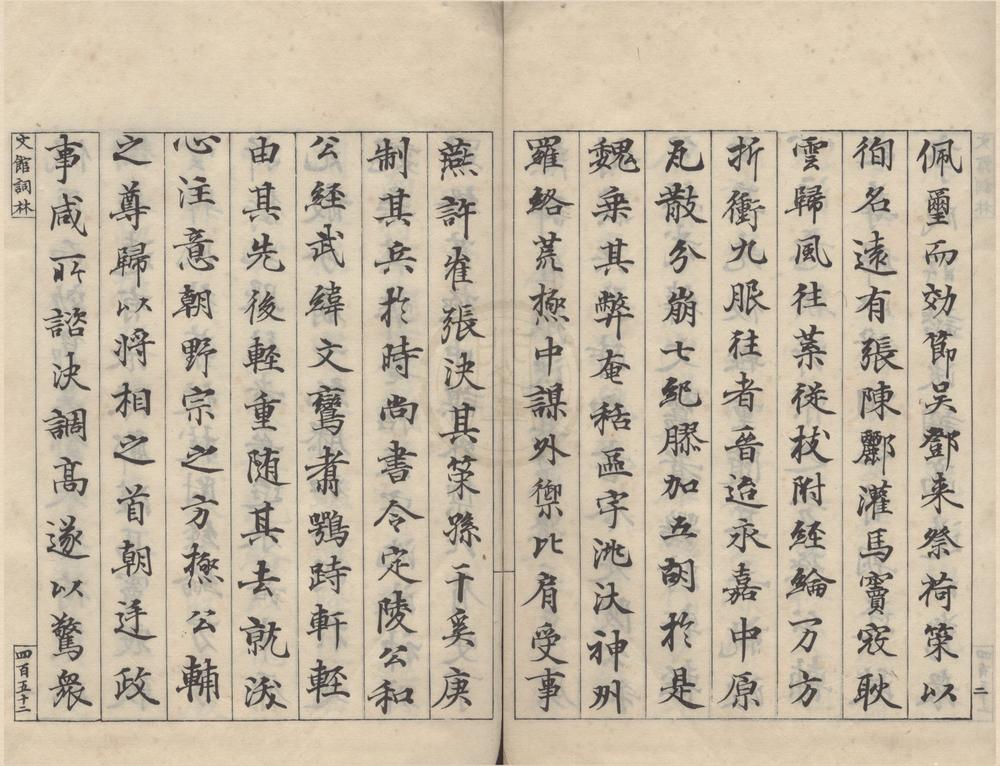 佩璽而効節吳鄧来祭荷築以
徇名遠有張陳酈灌馬竇寇耿
雲歸風往葉從枝附經綸万方
折衝九服往者晉迨永嘉中原
瓦散分崩七紀膠加五胡於是
魏乗其弊奄秳區宇洮汰神州
羅絡荒極中謀外禦比肩受事
燕許崔張決其策孫干奚庚
制其兵於時尚書令定陵公和
公經武緯文鸞翥鶚跱軒輊
由其先後輊重随其去就汲
心注意朝野宗之方極公輔
之尊歸以将相之首朝迋政
事咸所諮決調髙遂以驚衆
文館詞林
四百五十二
二